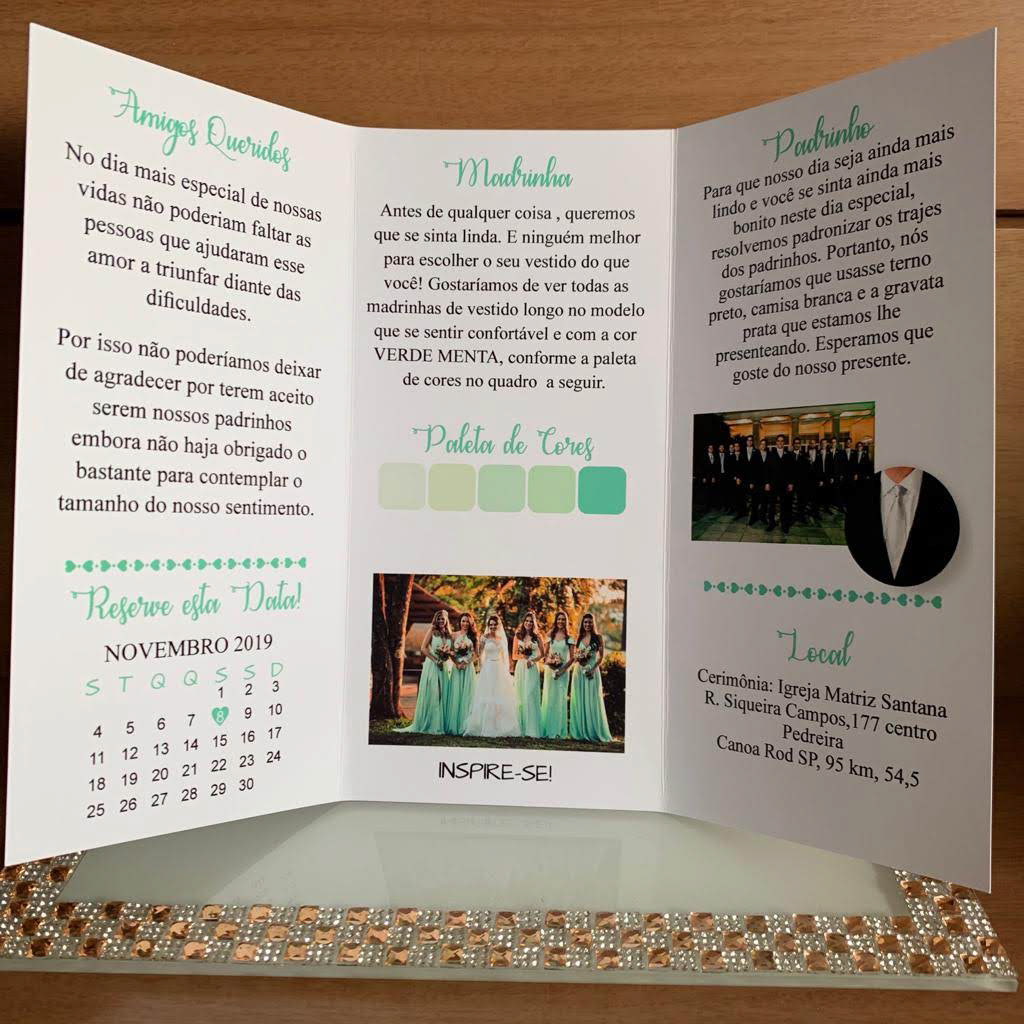 Amigos Queridos
No dia mais especial de nossas
vidas não poderiam faltar as
pessoas que ajudaram esse
amor a triunfar diante das
dificuldades.
Por isso não poderíamos deixar
de agradecer por terem aceito
serem nossos padrinhos
embora não haja obrigado o
bastante para contemplar o
tamanho do nosso sentimento.
Reserve esta Data!
NOVEMBRO 2019
S T Q Q S S D
1 2 3
4 5 6 7 8 9 10
11 12 13 14 15 16 17
18 19 20 21 22 23 24
25 26 27 28 29 30
Madrinha
Antes de qualquer coisa , queremos
que se sinta linda. E ninguém melhor
para escolher o seu vestido do que
você! Gostaríamos de ver todas as
madrinhas de vestido longo no modelo
que se sentir confortável e com a cor
VERDE MENTA, conforme a paleta
de cores no quadro a seguir.
Paleta de Cores
INSPIRE-SE!
Padrinho
Para que nosso dia seja ainda mais
lindo e você se sinta ainda mais
bonito neste dia especial,
resolvemos padronizar os trajes
dos padrinhos. Portanto, nós
gostaríamos que usasse terno
preto, camisa branca e a gravata
prata que estamos lhe
presenteando. Esperamos que
goste do nosso presente.
Local
Cerimônia: Igreja Matriz Santana
R. Siqueira Campos,177 centro
Pedreira
Canoa Rod SP, 95 km, 54,5